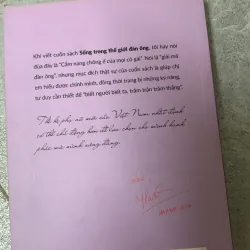 Khi viết cuốn sách Sống trong thế giới đàn ông, tôi hay nói
đùa đây là "Cẩm nang chống ế của mọi cô gái". Nói là "giải mã
đàn ông", nhưng mục đích thật sự của cuốn sách là giúp chị
em hiểu được chính mình, đồng thời trang bị những kỹ năng,
tư duy cần thiết để "biết người biết ta, trăm trận trăm thắng".
Thế hệ phụ nữ mới của Việt Nam nhất định
có thể chủ động hơn để lựa chọn cho mình hạnh
phúc mà mình xứng đáng.